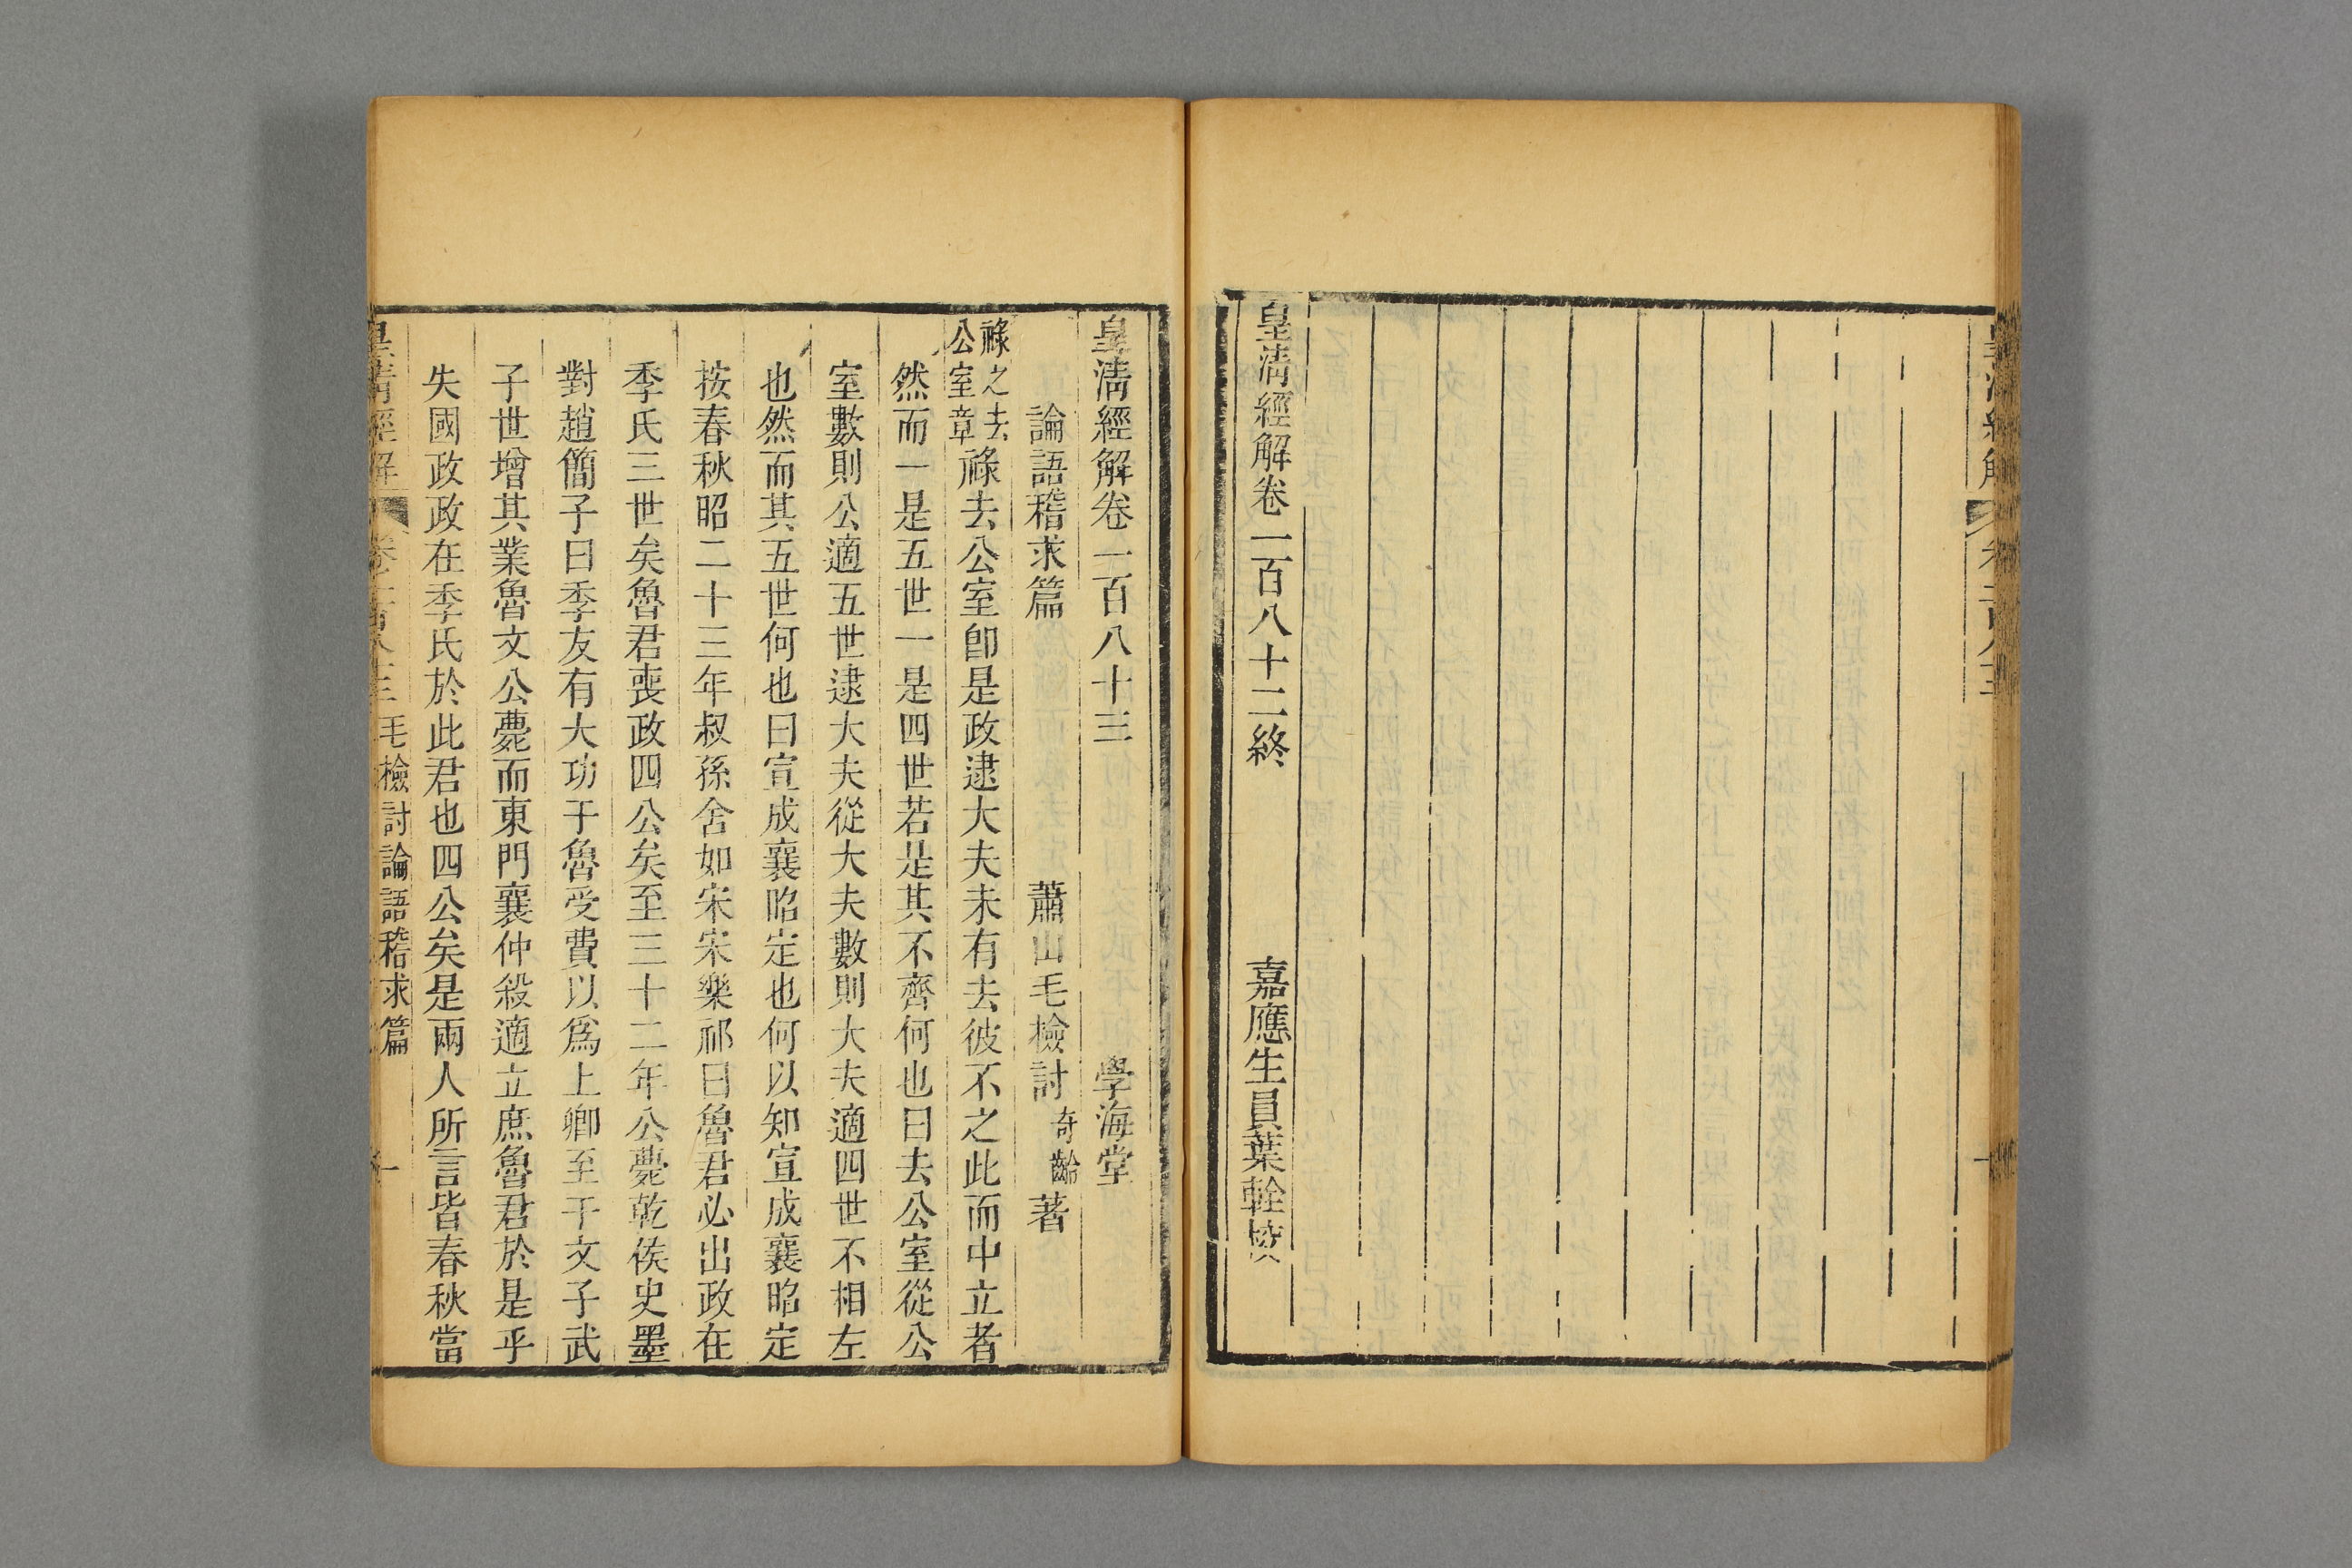 皇清經解卷一百八十二終
嘉應生員葉輇挍
皇清經解卷一百八十三
學海堂
論語稽求篇
蕭山毛檢討奇齡著
祿之去
公室章
祿去公室卽是政逮大夫未有去彼不之此而中立者
然而一是五世一是四世若是其不齊何也曰去公室從公
室數則公適五世逮大夫從大夫數則大夫適四世不相左
也然而其五世何也曰宣成襄昭定也何以知宣成襄昭定
按春秋昭二十三年叔孫舍如宋宋樂祁曰魯君必出政在
季氏三世矣魯君喪政四公矣至三十二年公薨乾侯史墨
對趙簡子曰季友有大功于魯受費以爲上卿至于文子武
子世增其業魯文公薨而東門襄仲殺適立庶魯君於是乎
失國政政在季氏於此君也四公矣是兩人所言皆春秋當
皇清經解
毛檢討論語稽求篇
一